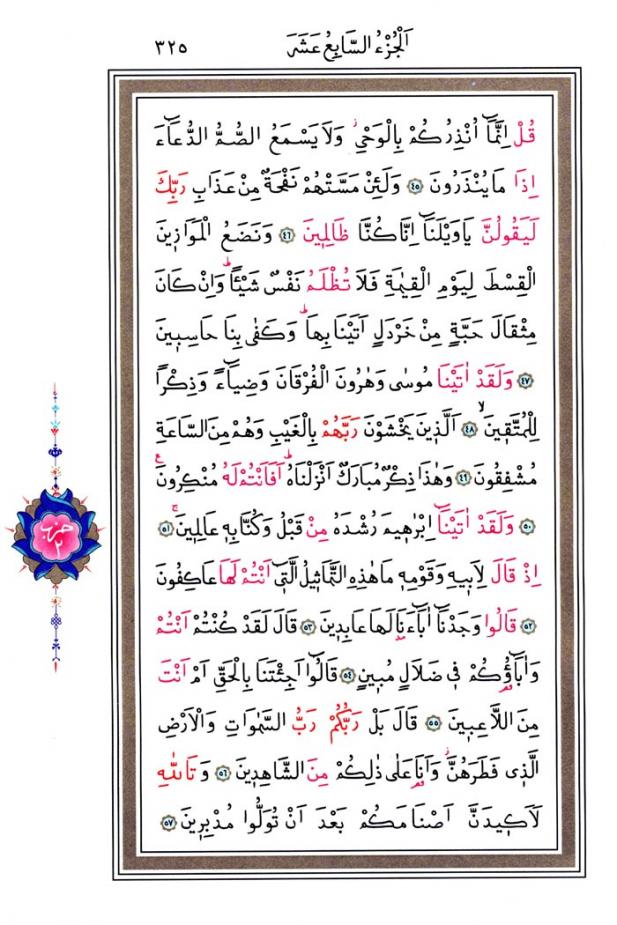 اَلْجُزْءُ السَّابِعُ عَشَرَ ٣٢٥
قُلْ اِنَّمَٓا اُنْذِرُكُمْ بِالْوَحْيِۘ وَلَا يَسْمَعُ الصُّمُّ الدُّعَٓاءَ
اِذَا مَا يُنْذَرُونَ ﴿٤٥﴾ وَلَئِنْ مَسَّتْهُمْ نَفْحَةٌ مِنْ عَذَابِ رَبِّكَ
لَيَقُولُنَّ يَاوَيْلَنَٓا اِنَّا كُنَّا ظَالِمِينَ ﴿٤٦﴾ وَنَضَعُ الْمَوَازِينَ
الْقِسْطَ لِيَوْمِ الْقِيٰمَةِ فَلَا تُظْلَمُ نَفْسٌ شَيْـًٔاۜ وَاِنْ كَانَ
مِثْقَالَ حَبَّةٍ مِنْ خَرْدَلٍ اَتَيْنَا بِهَاۜ وَكَفٰى بِنَا حَاسِبِينَ
﴿٤٧﴾ وَلَقَدْ اٰتَيْنَا مُوسٰى وَهٰرُونَ الْفُرْقَانَ وَضِيَٓاءً وَذِكْرًا
لِلْمُتَّقِينَۙ ﴿٤٨﴾ اَلَّذِينَ يَخْشَوْنَ رَبَّهُمْ بِالْغَيْبِ وَهُمْ مِنَ السَّاعَةِ
مُشْفِقُونَ ﴿٤٩﴾ وَهٰذَا ذِكْرٌ مُبَارَكٌ اَنْزَلْنَاهُۜ اَفَاَنْتُمْ لَهُ مُنْكِرُونَ۟
﴿٥٠﴾ وَلَقَدْ اٰتَيْنَٓا اِبْرٰهِيمَ رُشْدَهُ مِنْ قَبْلُ وَكُنَّا بِهِ عَالِمِينَۚ ﴿٥١﴾
اِذْ قَالَ لِاَبِيهِ وَقَوْمِهِ مَا هٰذِهِ التَّمَاثِيلُ الَّتِٓي اَنْتُمْ لَهَا عَاكِفُونَ
﴿٥٢﴾ قَالُوا وَجَدْنَٓا اٰبَٓاءَنَا لَهَا عَابِدِينَ ﴿٥٣﴾ قَالَ لَقَدْ كُنْتُمْ اَنْتُمْ
وَاٰبَٓاؤُكُمْ فِي ضَلَالٍ مُبِينٍ ﴿٥٤﴾ قَالُٓوا اَجِئْتَنَا بِالْحَقِّ اَمْ اَنْتَ
مِنَ اللَّاعِبِينَ ﴿٥٥﴾ قَالَ بَلْ رَبُّكُمْ رَبُّ السَّمٰوَاتِ وَالْاَرْضِ
الَّذِي فَطَرَهُنَّۘ وَاَنَا عَلٰى ذٰلِكُمْ مِنَ الشَّاهِدِينَ ﴿٥٦﴾ وَتَاللّٰهِ
لَاَكِيدَنَّ اَصْنَامَكُمْ بَعْدَ اَنْ تُوَلُّوا مُدْبِرِينَ ﴿٥٧﴾
حزب
٢